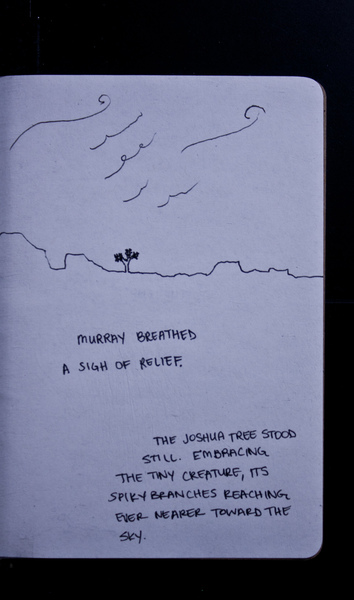 MURRAY BREATHED
A SIGH OF RELIEF.
THE JOSHUA TREE STOOD
STILL. EMBRACING
THE TINY CREATURE, ITS
SPIKY BRANCHES REACHING
EVER NEARER TOWARD THE
SKY.